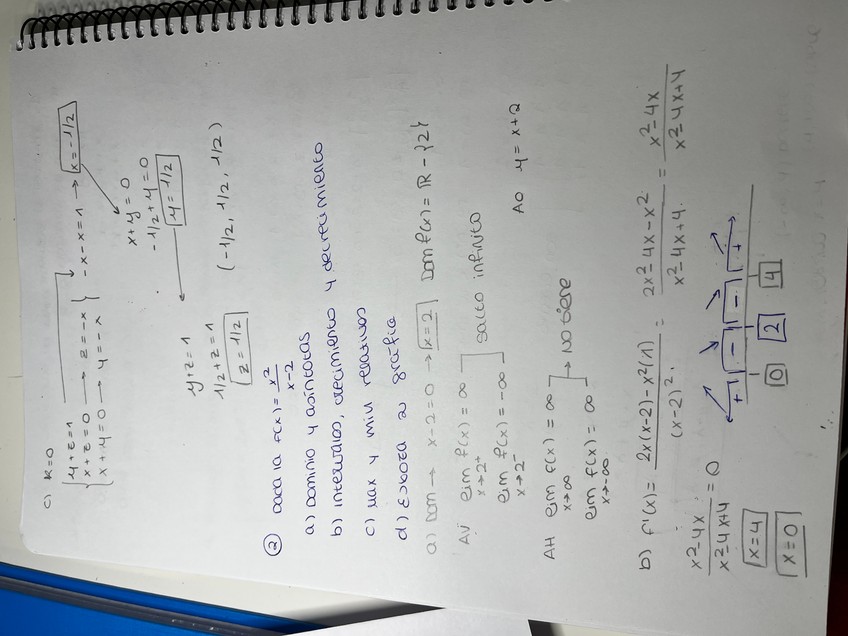 c) K=0
y+z=1
x+z=0 → z=-x
x+y=0 → y=-x
-x-x=1 → x=-1/2
x+y=0
-1/2+y=0
y=1/2
y+z=1
1/2+z=1
z=1/2
(-1/2, 1/2, 1/2)
② Dada la f(x)= x²/x-2
a) Dominio y asíntotas
b) intervalos, crecimiento y decrecimiento
c) Max y min relativos
d) Esboza su gráfica
a) Dom → x-2=0 → x=2 Dom f(x)=ℝ-{2}
AV lim x→2⁺ f(x)=∞
lim x→2⁻ f(x)=-∞
salto infinito
AH lim x→∞ f(x)=∞
lim x→-∞ f(x)=∞
→ No tiene
AO y=x+2
b) f'(x)= 2x(x-2)-x²(1)/(x-2)² = 2x²-4x-x²/x²-4x+4 = x²-4x/x²-4x+4
x²-4x/x²-4x+4=0
x=4
x=0
+ - - +
0 2 4